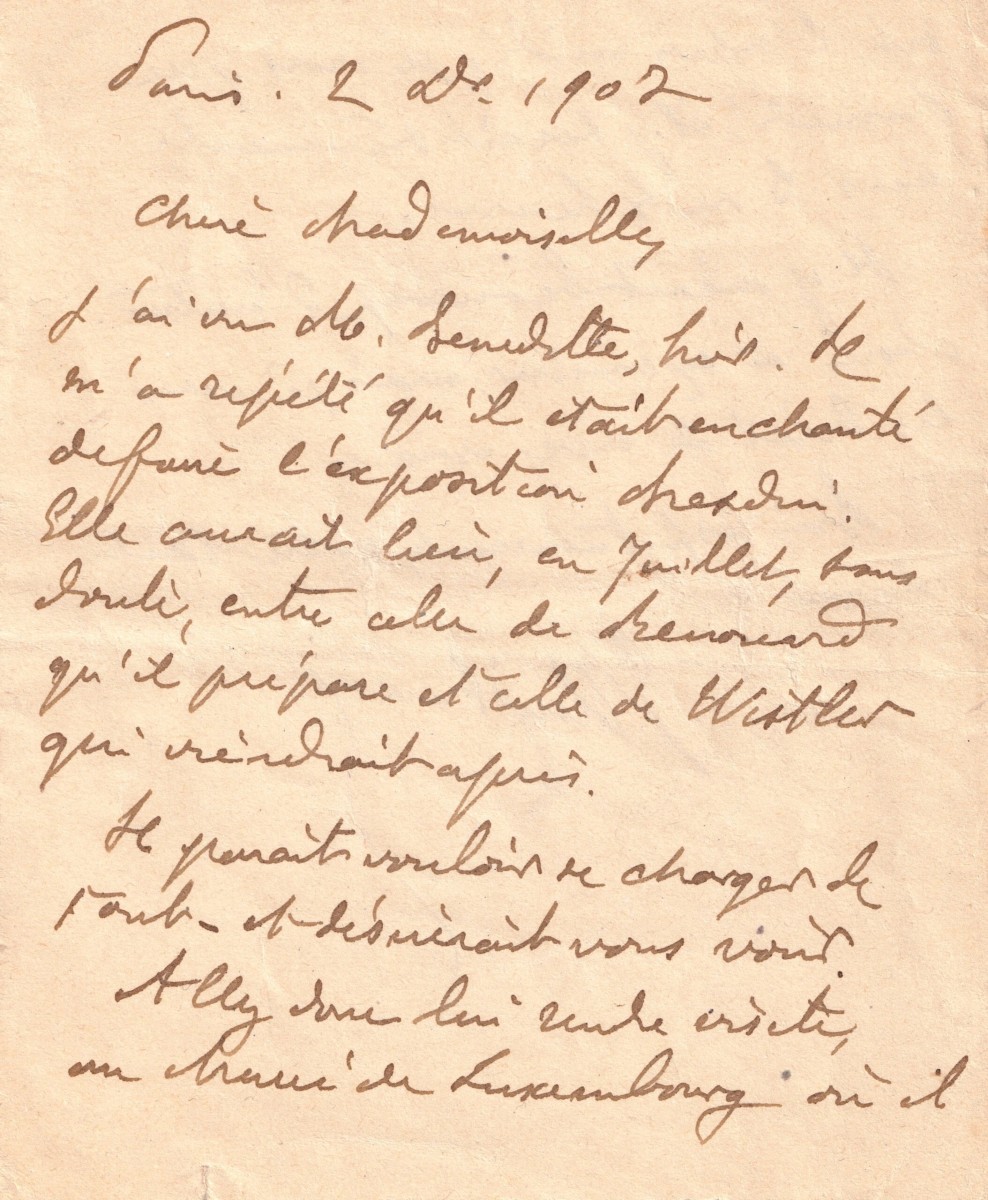 Paris. 2 Dre 1907
Chère Mademoiselle,
J'ai vu M. Benedette, hier. Il
m'a répété qu'il était enchanté
de faire l'exposition
Elle aurait lieu, en Juillet, sans
doute, entre celle de Renouard
qu'il prépare et celle de Wistler
qui viendrait après.
Il parait vouloir se charger de
tout - et désirerait vous voir.
Allez donc lui rendre visite,
au Musée du Luxembourg où il